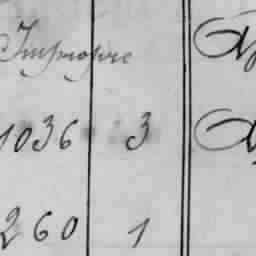 Improprie
1036 3
260 1